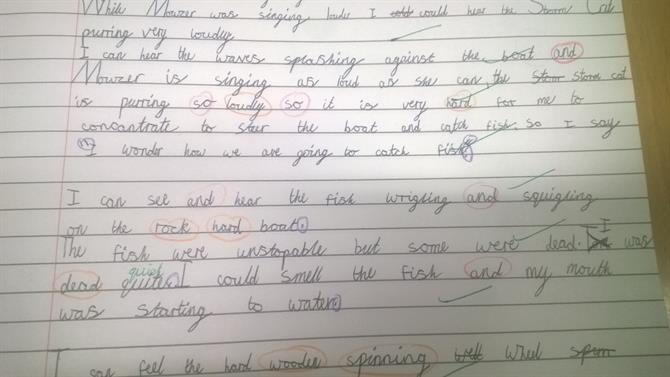 While Mowzer was singing louder I could hear the Storm Cat
purring very loudly
I can hear the waves splashing against the boat and
Mowzer is singing as loud as she can the storm cat
is purring so loudly so it is very hard for me to
concantrate to ster the boat and catch fish. so I say
"I wonder how we are going to catch fish"
I can see and hear the fish wrigling and squigling
on the rock hard boat.
The fish were unstopable but some were dead. I was
dead quiet. I could smell the fish and my mouth
was starting to water.
I can feel the hard wooden spinning wheel